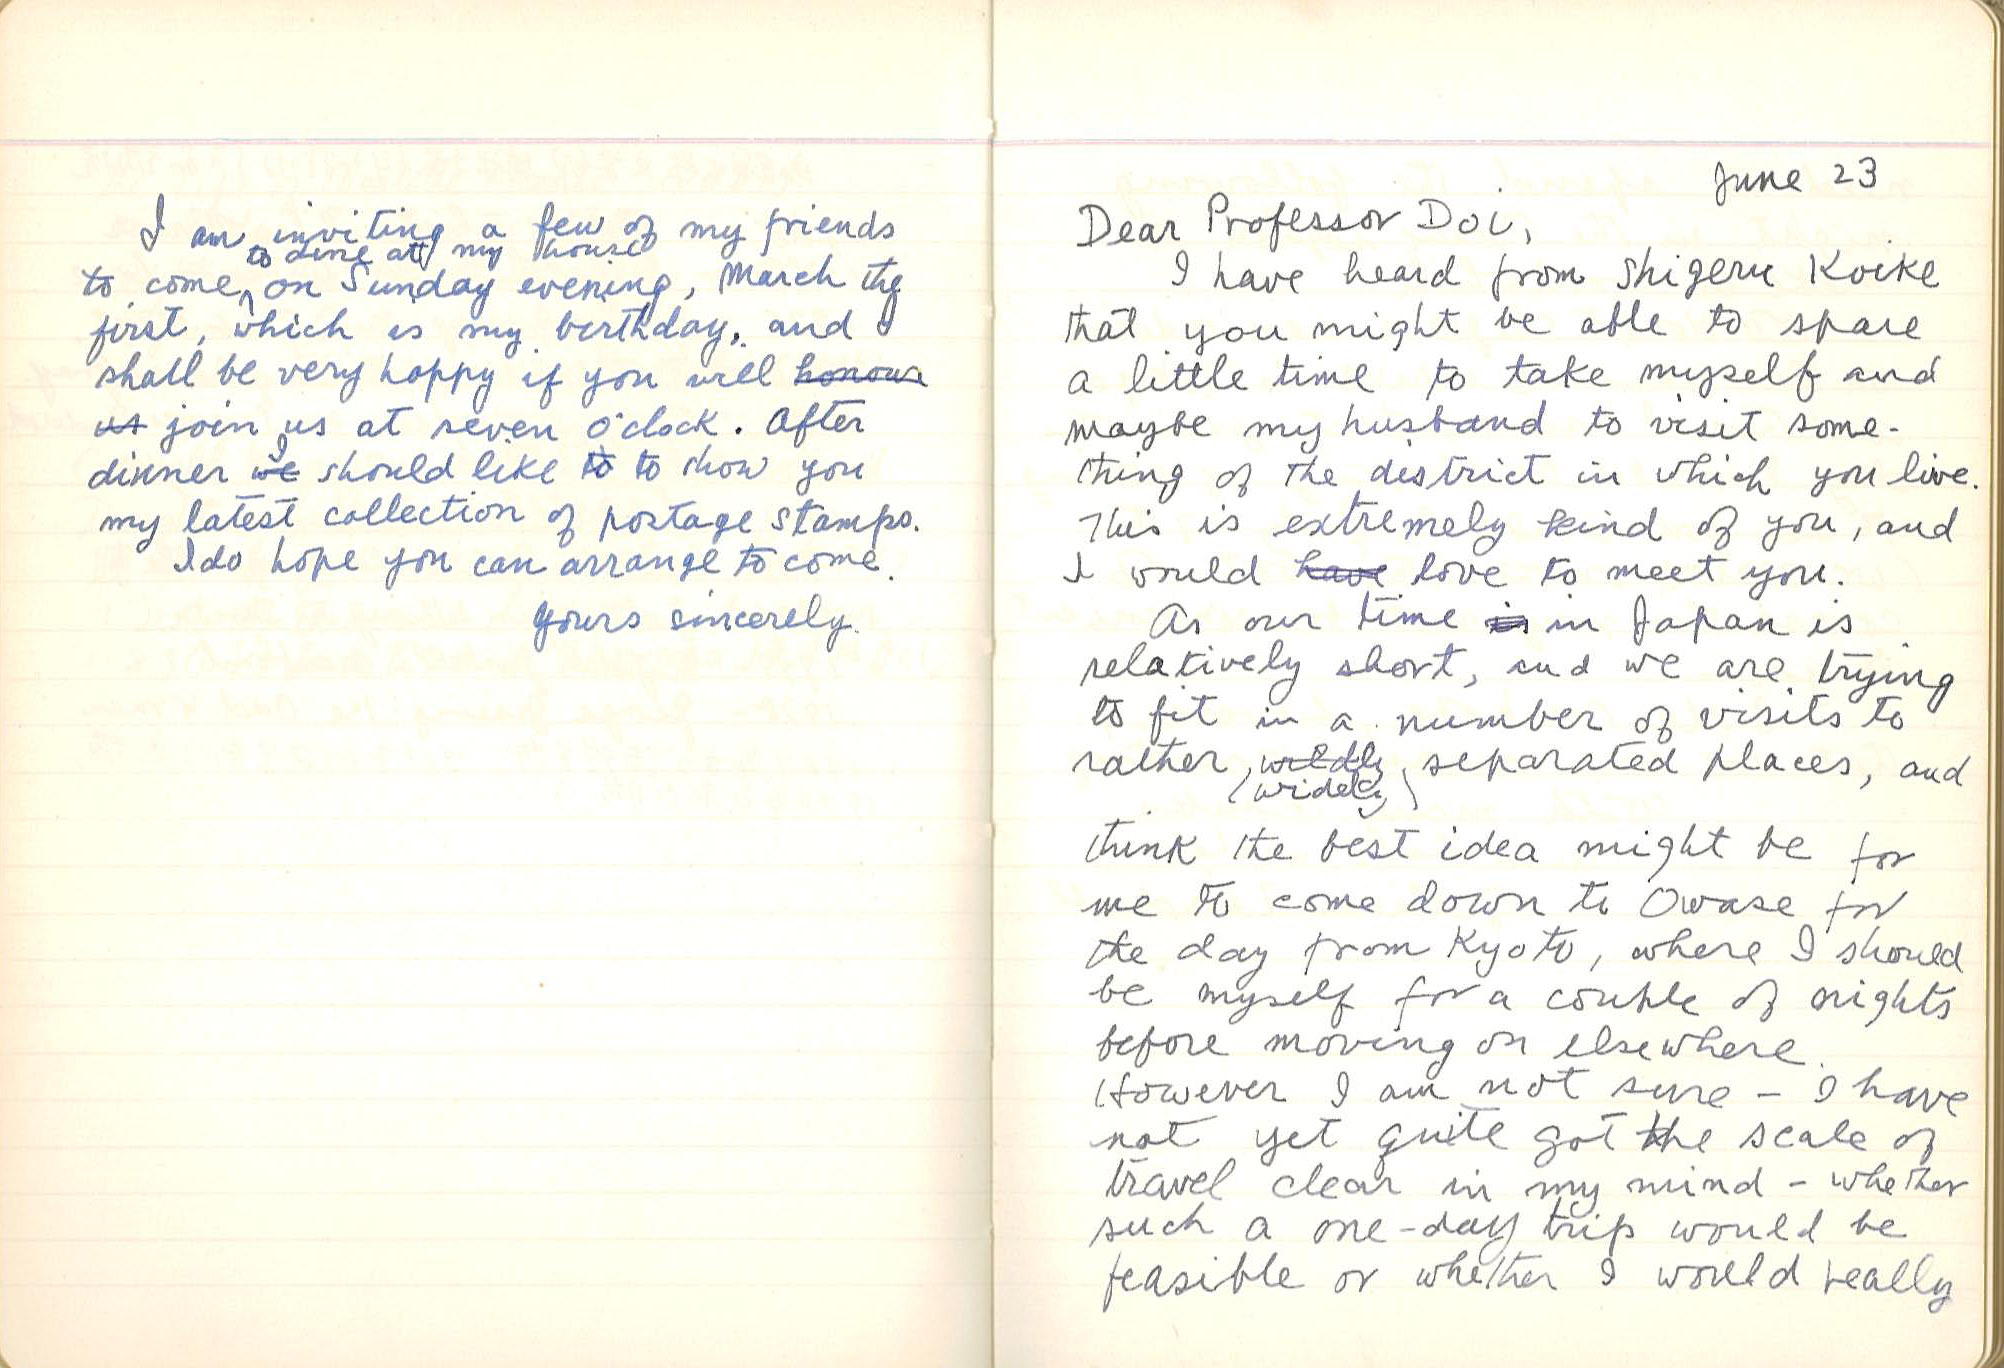 I am inviting a few of my friends
to come, to dine at my house on Sunday evening, March the
first, which is my birthday, and
shall be very happy if you will honour
us join us at seven o'clock. After
dinner we I should like to to show you
my latest collection of postage stamps.
I do hope you can arrange to come.
Yours sincerely.
June 23
Dear Professor Doi,
I have heard from Shigeru Koike
that you might be able to spare
a little time to take myself and
maybe my husband to visit some-
thing of the district in which you live.
This is extremely kind of you, and
I would have love to meet you.
As our time is in Japan is
relatively short, and we are trying
to fit in a number of visits to
rather wildly separated places, and
(widely)
think the best idea might be for
me to come down to Owase for
the day from Kyoto, where I should
be myself for a couple of nights
before moving on elsewhere.
However I am not sure – I have
not yet quite got the scale of
travel clear in my mind – whether
such a one-day trip would be
feasible or whether I would really